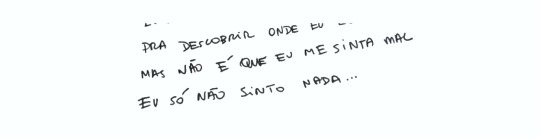 PRA DESCOBRIR ONDE EU
MAS NÃO É QUE EU ME SINTA MAL
EU SÓ NÃO SINTO NADA...